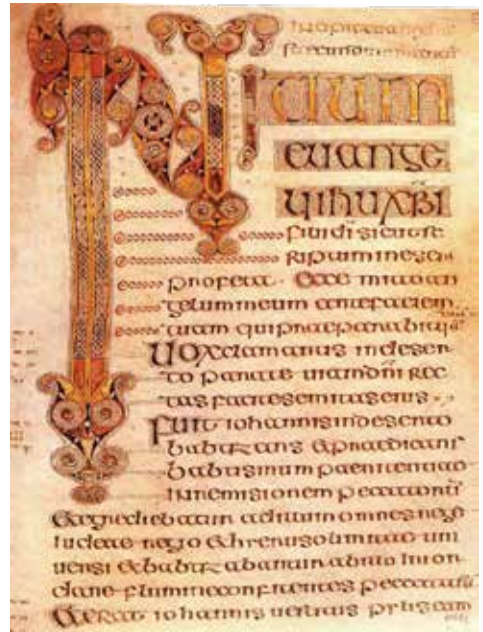 INITIUM
euange
lii ihu xpi
fili di sicut
Riptum in esai
profeta · Ecce mitto an
gelum meum ante faciem
tuam qui praeparabit
Uox clamantis in deser
to parate uiam dni Rec
tas facite semitas eius
Fuit iohannis in deserto
babtizans & praedicans
babtismum paenitentiae
in remisionem peccatorū
& egrediebatur ad illum omnes
iudeae regio & hierusolimitae uni
uersi & babtizabantur ab illo in ior
dane flumine confitentes peccata
& erat iohannis uestitus pilis cam